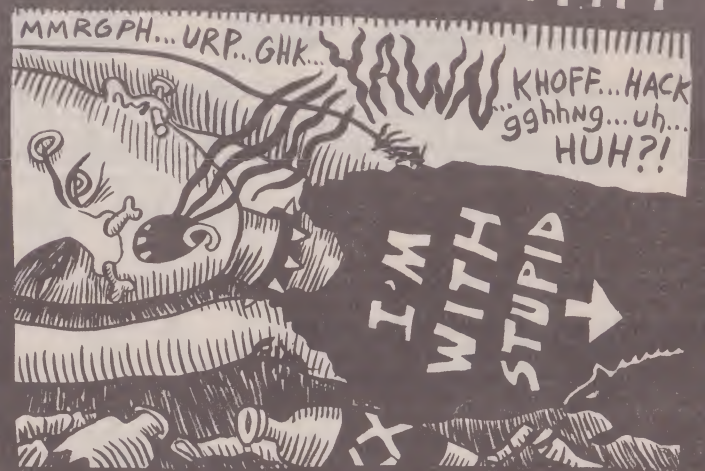 MMRGPH...URP...GHK...
YAWN
KHOFF...HACK
...gghhng...uh...
HUH?!
I'M
WITH
STUPID